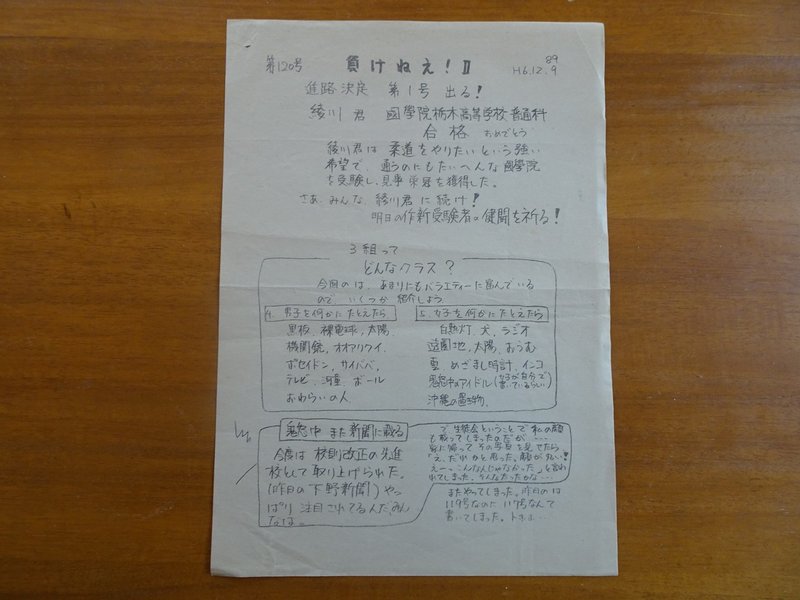 第120号 負けねえ!Ⅱ 89 H6.12.9
進路決定 第1号 出る!
綾川君 國學院栃木高等学校普通科
合格 おめでとう
綾川君は 柔道をやりたいという強い
希望で 通うのにもたいへんな國學院
を受験し、見事 栄冠を獲得した。
さあ、みんな、綾川君に続け!
明日の作新受験者の健闘を祈る!
3組って
どんなクラス?
今回のは、あまりにもバラエティーに富んでいる
ので いくつか 紹介しよう
4. 男子を何かにたとえたら
黒板、裸電球、太陽、
機関銃、オオアリクイ、
ポセイドン、サイババ、
テレビ、河童、ボール
おわらいの人
5. 女子を何かにたとえたら
白熱灯、犬、ラジオ
遊園地、太陽、おうむ
夏、めざまし時計、インコ
中のアイドル(女子が自分で書いているらしい)
沖縄の置物、
中 また新聞に載る
今度は 校則改正の先進
校として取り上げられた。
(昨日の下野新聞)やっ
ぱり 注目されてるんだ、みん
なは。
で 生徒会ということで 私の顔
も載ってしまったのだが…
家に帰って その写真を見せたら
「え、だれかと思った。顔が丸い!
えー、こんなんじゃなかった」と言わ
れてしまった。そんなだったかな…
またやってしまった。昨日のは
119号なのに 117号なんて
書いてしまった。トホホ…